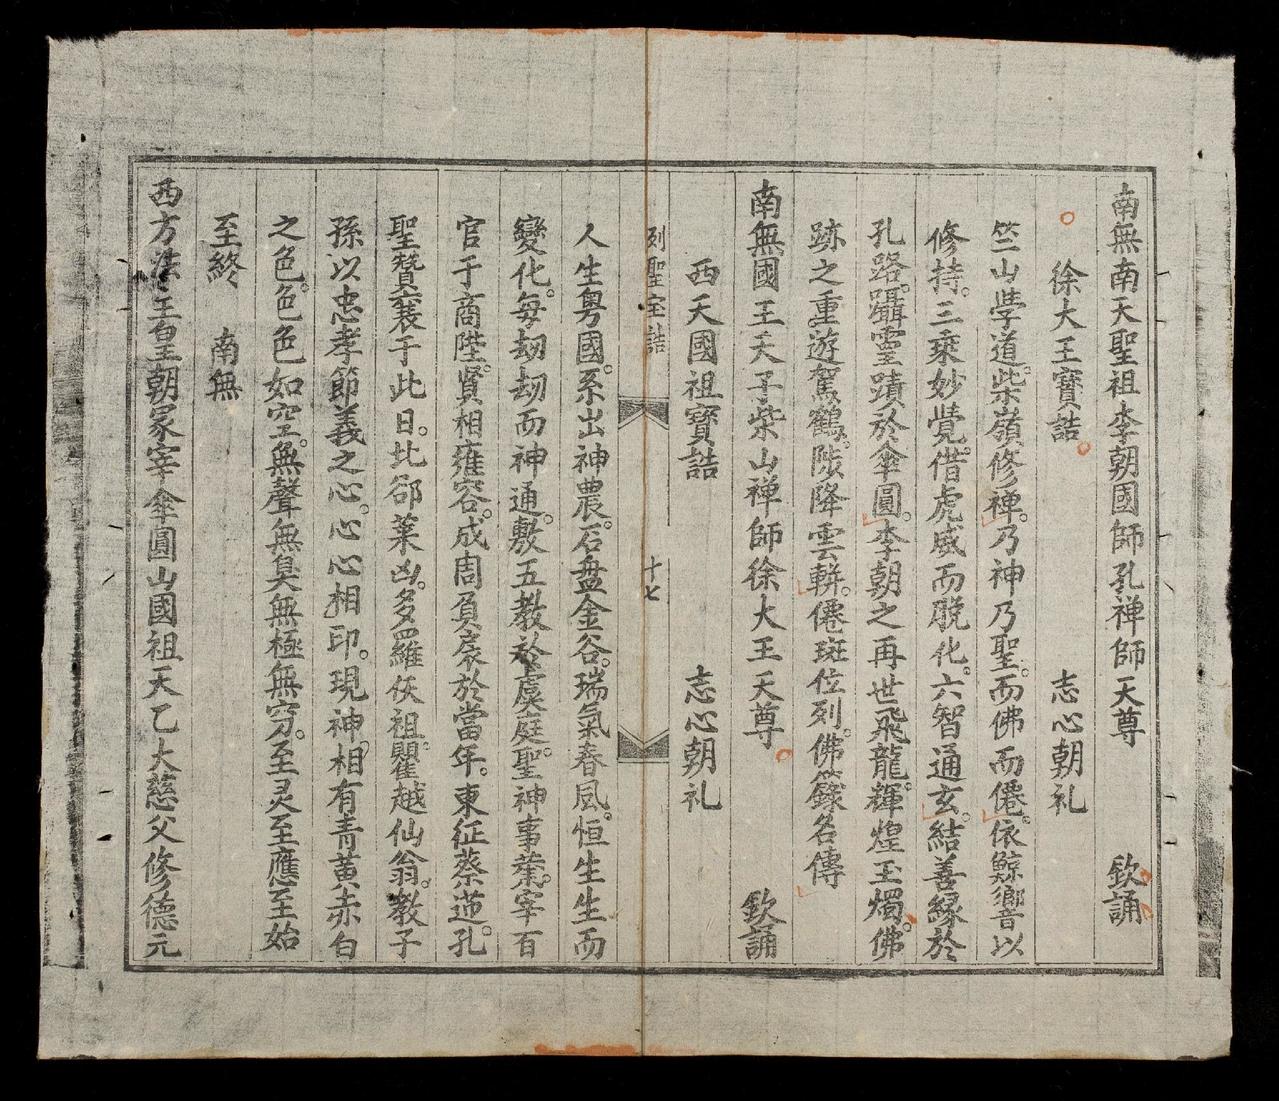 南無南天聖祖李朝國師孔禅師天尊 欽誦
徐大王寶誥 志心朝礼
竺山学道。柴嶺修禅。乃神乃聖。而佛而僊。依鯨響以
修持。三乘妙覺。借虎威而脱化。六智通玄。結善緣於
孔路。躡霊蹟於傘圓。李朝之再世飛龍。輝煌玉燭。佛
跡之重遊駕鶴。陟降雲軿。僊班位列。佛籙名傳
南無國王天子柴山禅師徐大王天尊 欽誦
西天國祖寶誥 志心朝礼
列聖宝誥 十七
人生粤國。系出神農。石盘金谷。瑞氣春風。恒生生而
變化。每刼刼而神通。敷五教於虞庭。聖神事業。宰百
官于商陛。賢相雍容。成周負扆於當年。東征蔡
聖賛襄于此日。北
孫以忠孝節義之心。心心相印。現神相有青黄赤白
之色。色色如空。無聲無臭無極無穷。至灵至應至始
至終 南無
西方法王皇朝冢宰傘圓山國祖天乙大慈父修德元